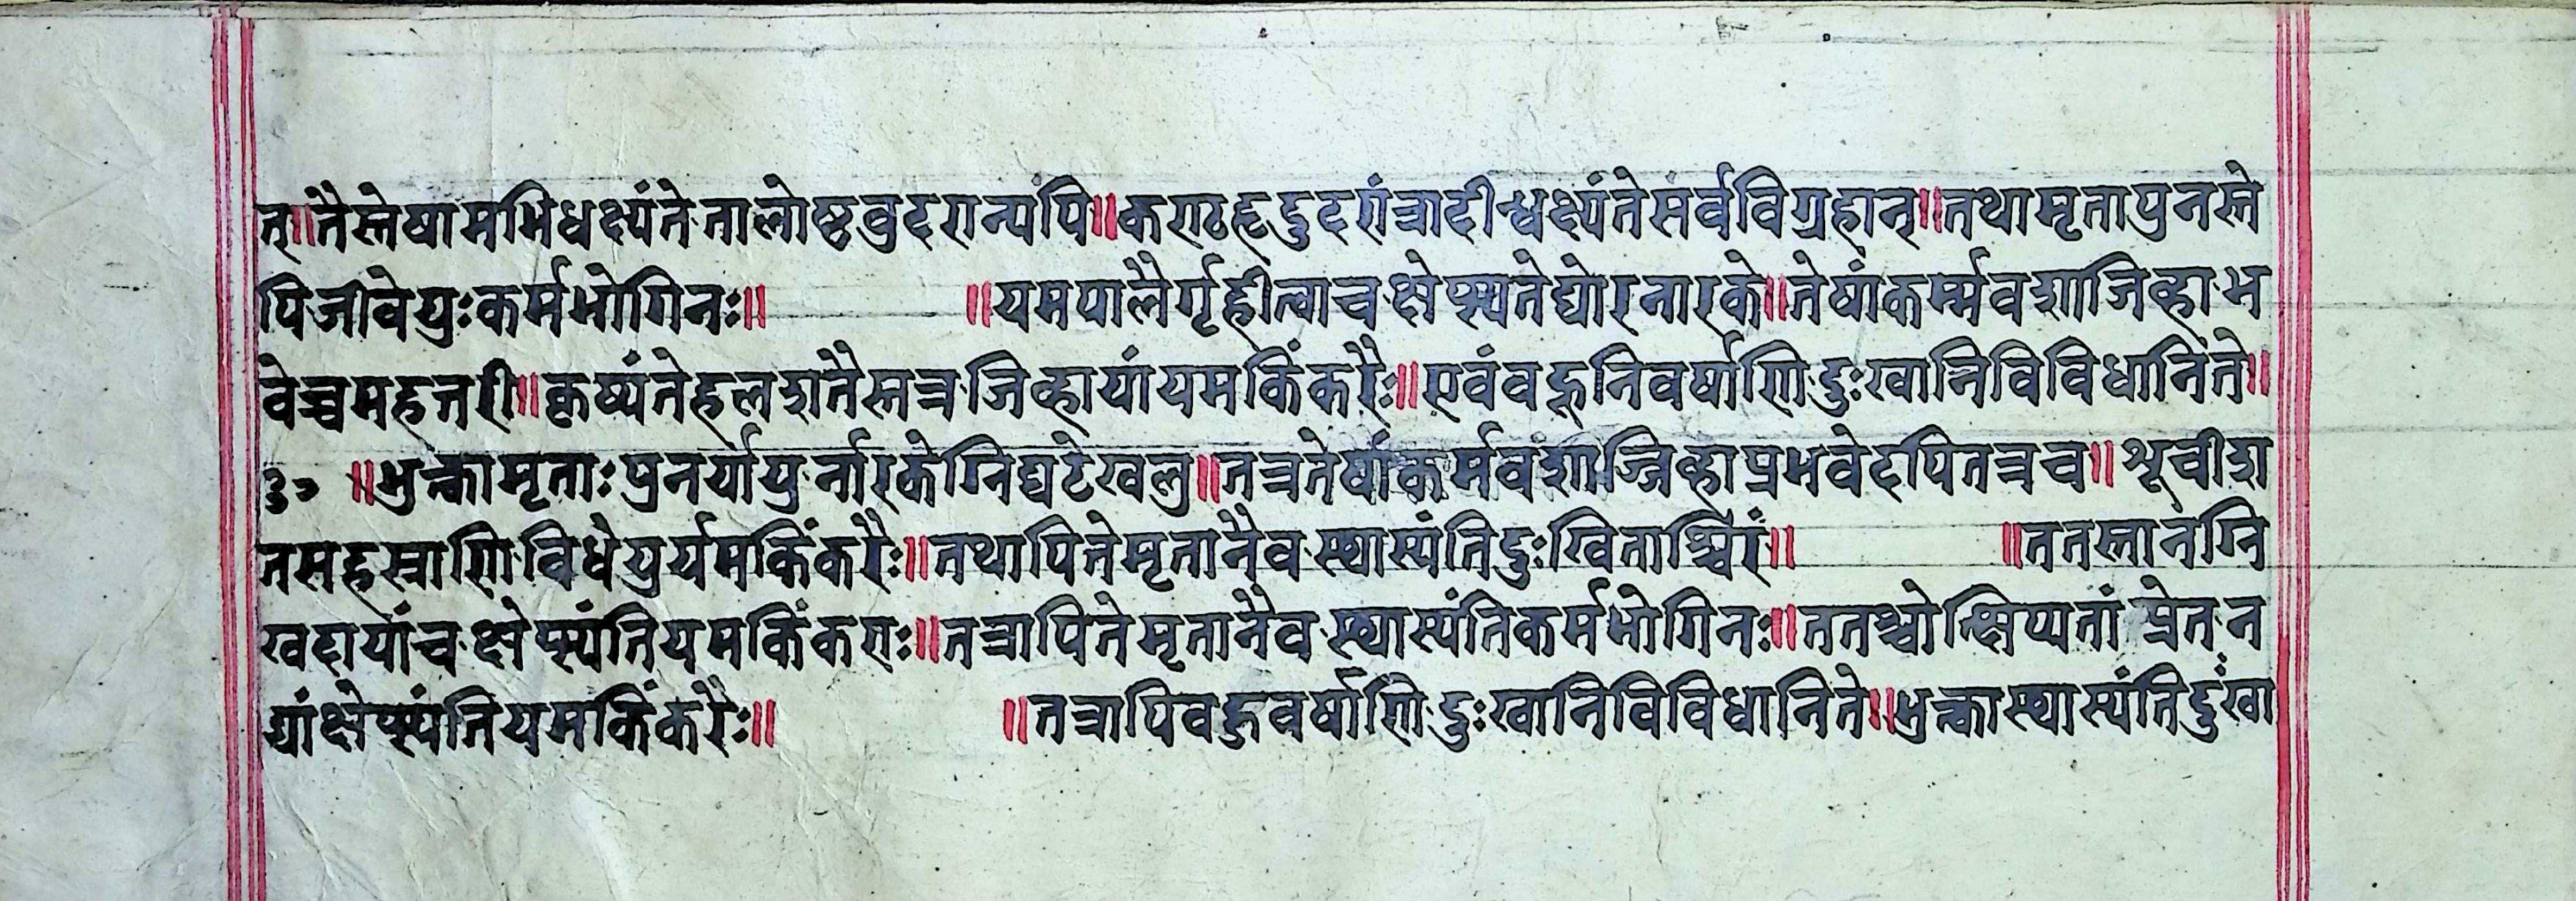 त्॥तैस्तेषामभिधक्ष्यंते तालोष्ठवुदरान्यपि॥कराठहृदुदरांत्रादीन्धक्ष्यंते सर्वविग्रहान्॥तथामृतापुनस्ते
पिजीवेयुःकर्मभोगिनः॥ ॥यमपालैर्गृहीत्वाचक्षेप्स्यतेघोरनारके॥तेषांकर्म्मवशाजिव्हाभ
वेच्चमहत्तरी॥कृष्यंतेहलशतैस्तत्रजिव्हायांयमकिंकरैः॥एवंवहूनिवर्षाणिदुःखानिविविधानिते॥
३० ॥भुत्क्वामृताःपुनर्यायुर्नारकेग्निघटेखलु॥तत्रतेषांकर्मवशाज्जिव्हाप्रभवेदपितत्रच॥श्रूचीश
तसहस्त्राणिविधेयुर्यमकिंकरैः॥तथापितेमृतानैवस्थास्यंतिदुःखिताश्चिरं॥ ॥ततस्तानग्नि
खदायांचक्षेप्स्यंतियमकिंकराः॥तत्रापितेमृतानैवस्थास्यंतिकर्मभोगिनः॥ततश्चोत्क्षिप्यतां प्रेतन
द्यांक्षेप्स्यंतियमकिंकरैः॥ ॥तत्रापिवहुवर्षाणिदुःखानिविविधानिते॥भुत्क्वास्थास्यंतिदुःखा